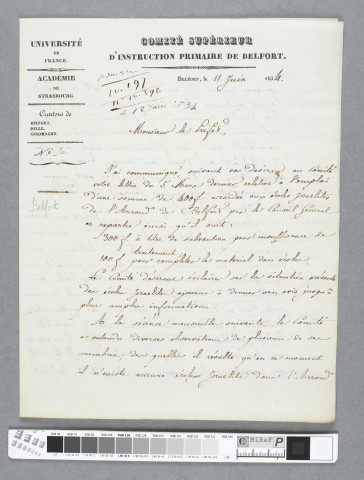 UNIVERSITÉ
DE
FRANCE.
ACADÉMIE
DE
STRASBOURG.
Cantons de
BELFORT,
DELLE,
GIROMAGNY.
COMITÉ SUPÉRIEUR
D'INSTRUCTION PRIMAIRE DE BELFORT.
BELFORT, le 11 Juin 1834.
Monsieur le Préfet,
J'ai communiqué, suivant vos désirs, au Comité
votre lettre du 5 Mars dernier, relative à l'emploi
d'une somme de 400f accordée aux écoles israélites
de l'Arrondt de Belfort par le Conseil Général
et répartie ainsi qu'il suit:
300f à titre de subvention pour insuffisance de
traitement
100f pour compléter le matériel des écoles.
Le Comité désirant s'éclairer sur la situation présente
des écoles Israélites ajourna à donner son avis jusqu'à
plus amples informations.
À la séance mensuelle suivante le Comité
a entendu diverses observations de plusieurs de ses
membres, desquelles il résulte qu'en ce moment
il n'existe aucune école Israélite dans l'Arrondt
Belfort